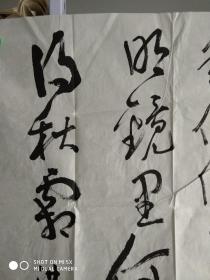 明鏡里
得秋霜
SHOT ON MI 5X
MI DUAL CAMERA